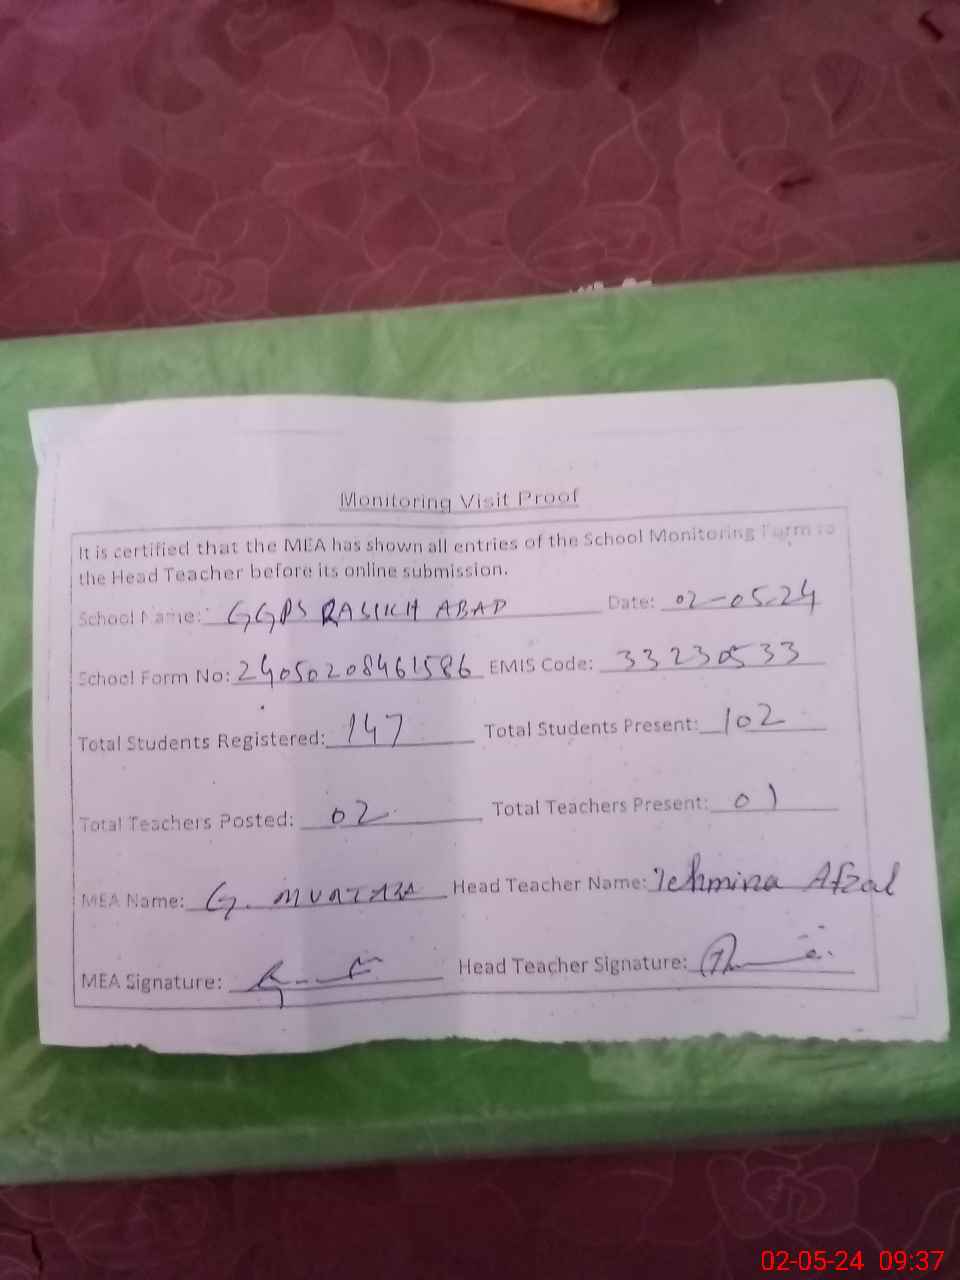 Monitoring Visit Proof
It is certified that the MEA has shown all entries of the School Monitoring Form to
the Head Teacher before its online submission.
School Name: GGPS ABAD Date: 02-05-24
School Form No: 24050208461586 EMIS Code: 33230533
Total Students Registered: 147 Total Students Present: 102
Total Teachers Posted: 02 Total Teachers Present: 01
MEA Name: G. MURTAZA Head Teacher Name: Tehmina Afzal
MEA Signature: Head Teacher Signature:
02-05-24 09:37